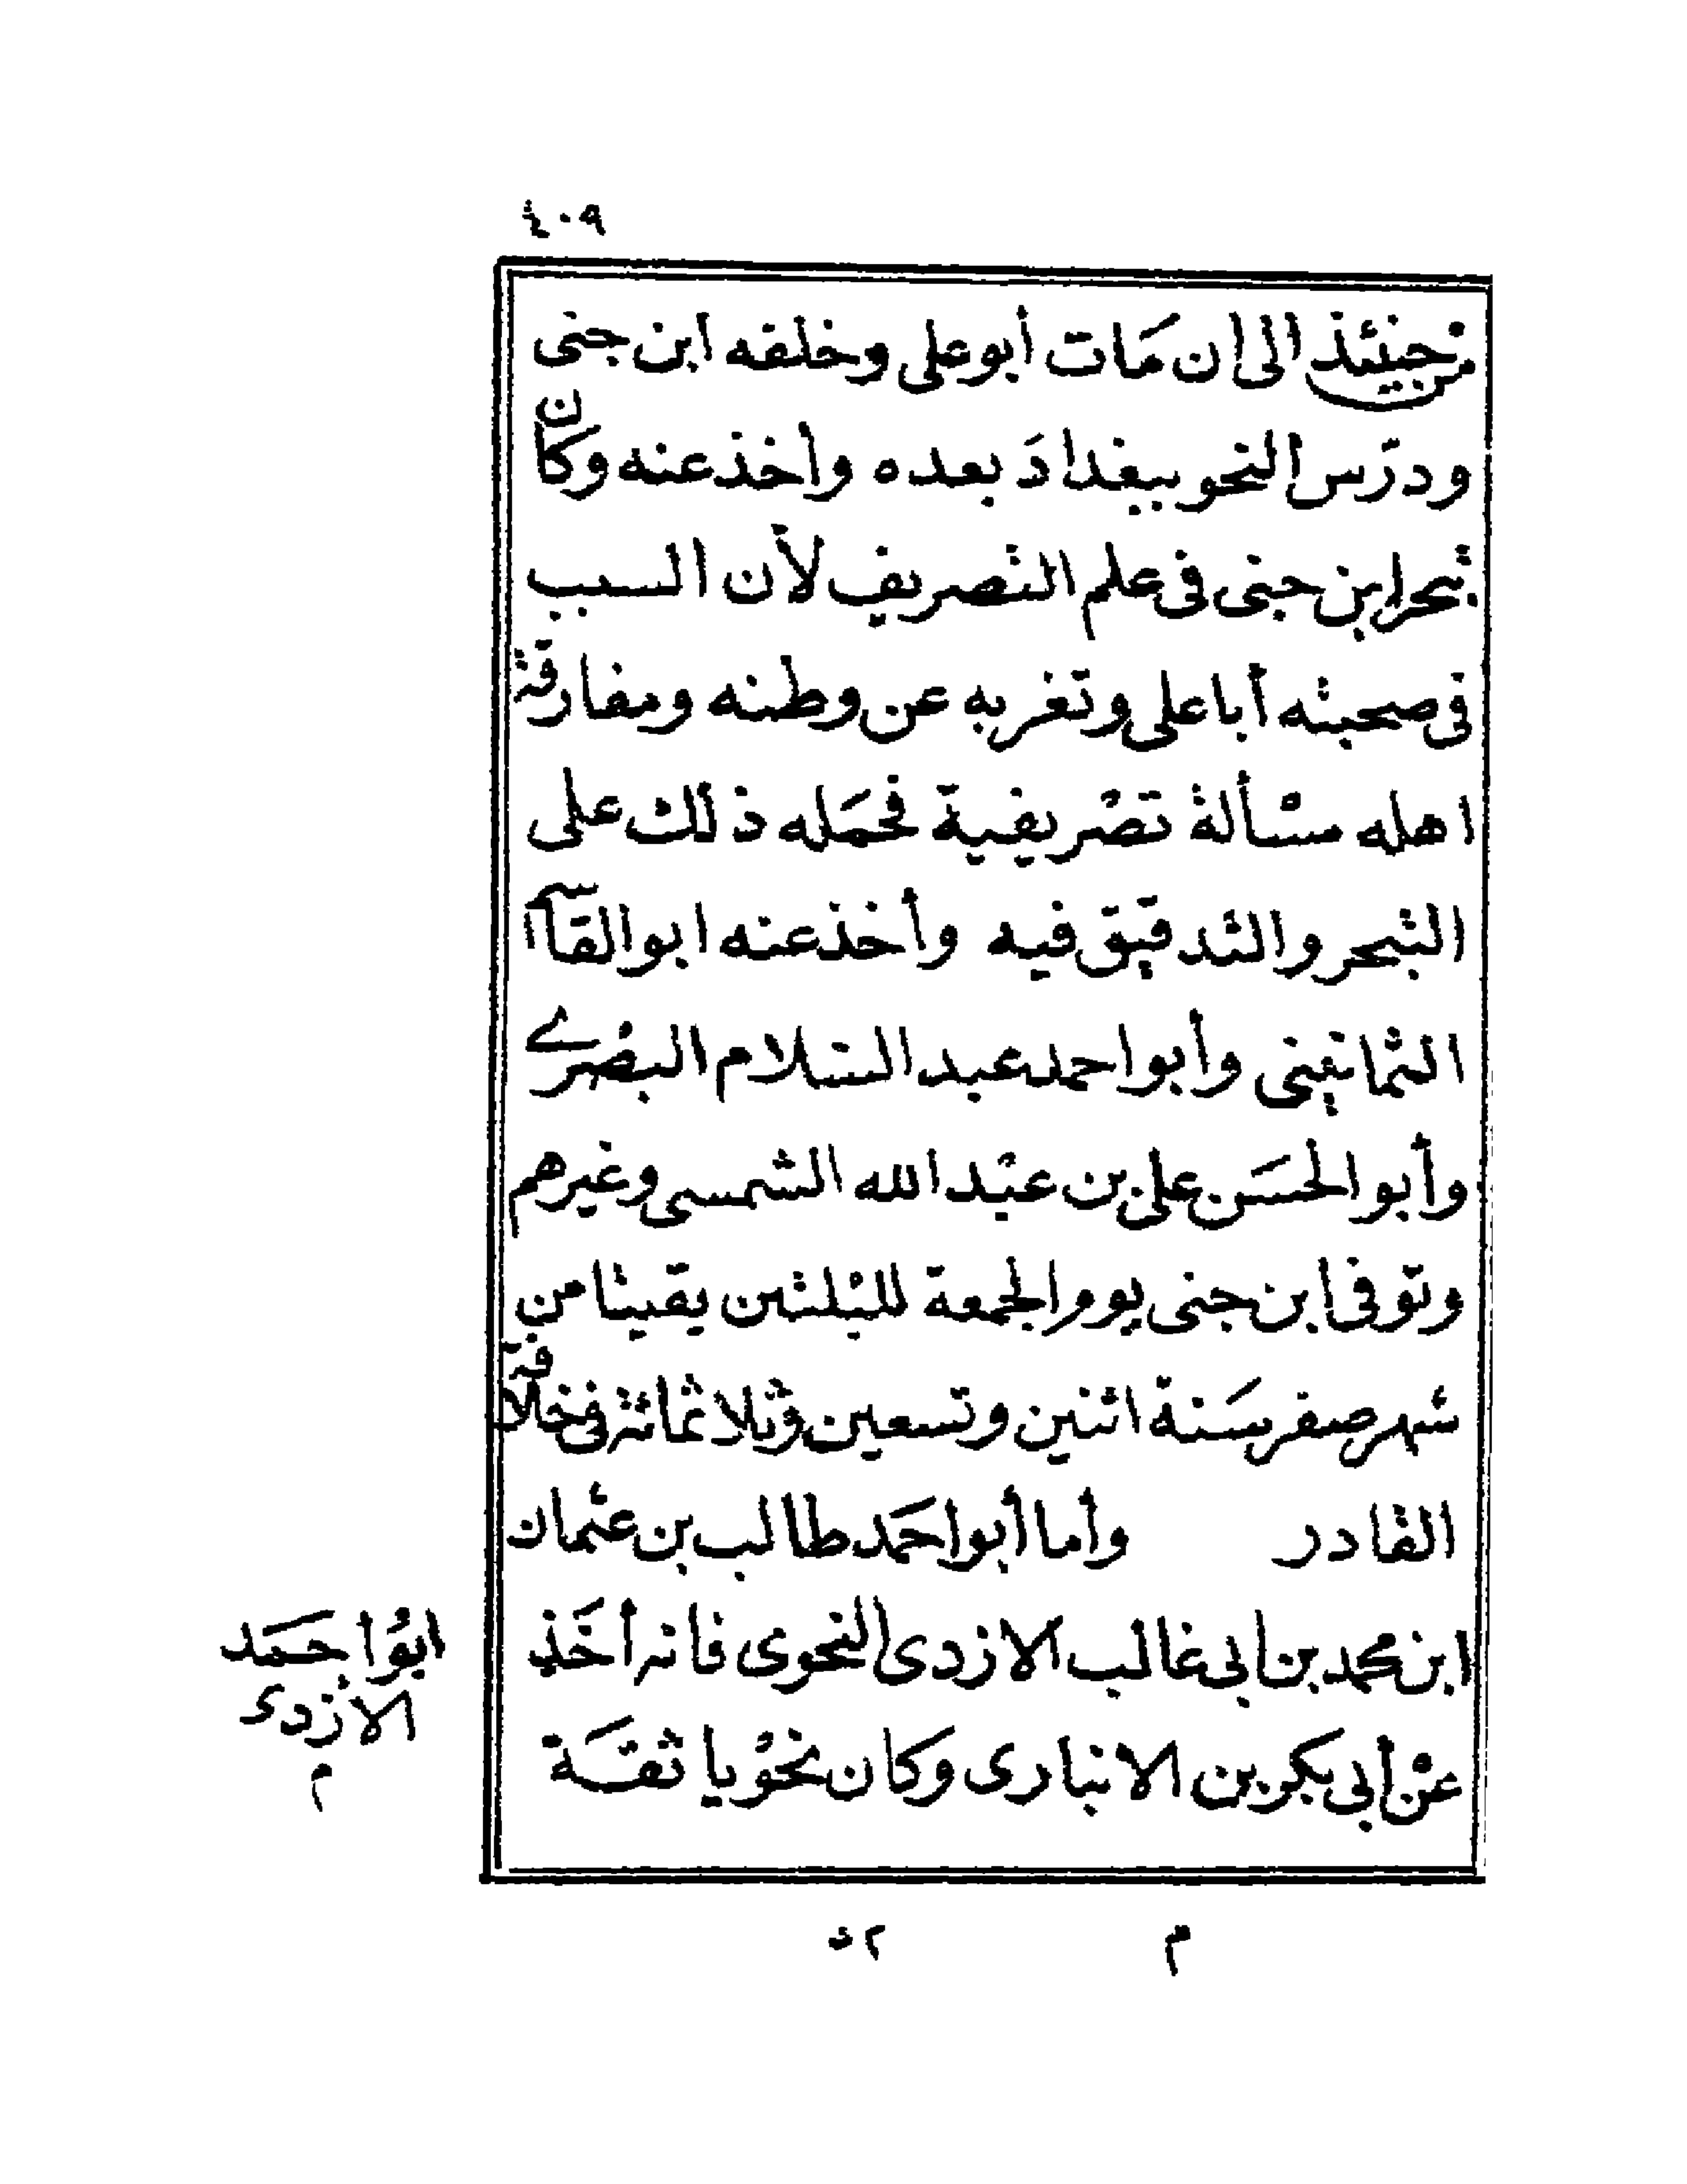 ٤٠٩
من حينئذ الى ان مَات أبو على وخلفه ابن جنى
ودرّس النحو ببغدادَ بعده وأخذ عنه وكان
تبحر ابن جنى فى علم التصريف لأن السبب
فى صحبته أبا على وتغربه عن وطنه ومفارقة
اهله مسْألة تصْريفية فحمَله ذلك على
التبحر والتدقيق فيه وأخذ عنه ابو القاسم
الثمانينى وأبو احمد عبد السّلام البصْرى
وأبو الحسَن على بن عبْد الله الشمسى وغيرهم
وتوفى ابن جنى يوم الجمعة لليْلتين بقيتا من
شهر صفر سَنة اثنين وتسعين وثلاثمائة فى خلافة
القادر وأما أبو احمَد طالب بن عثمان
ابن محمد بن ابى غالب الازدى النحوى فانه أخَذ
عنْ أبى بكر بن الانبارى وكان نحوْيا ثقَة
ابوُ احمَد
الازدى
م
م ٥٢